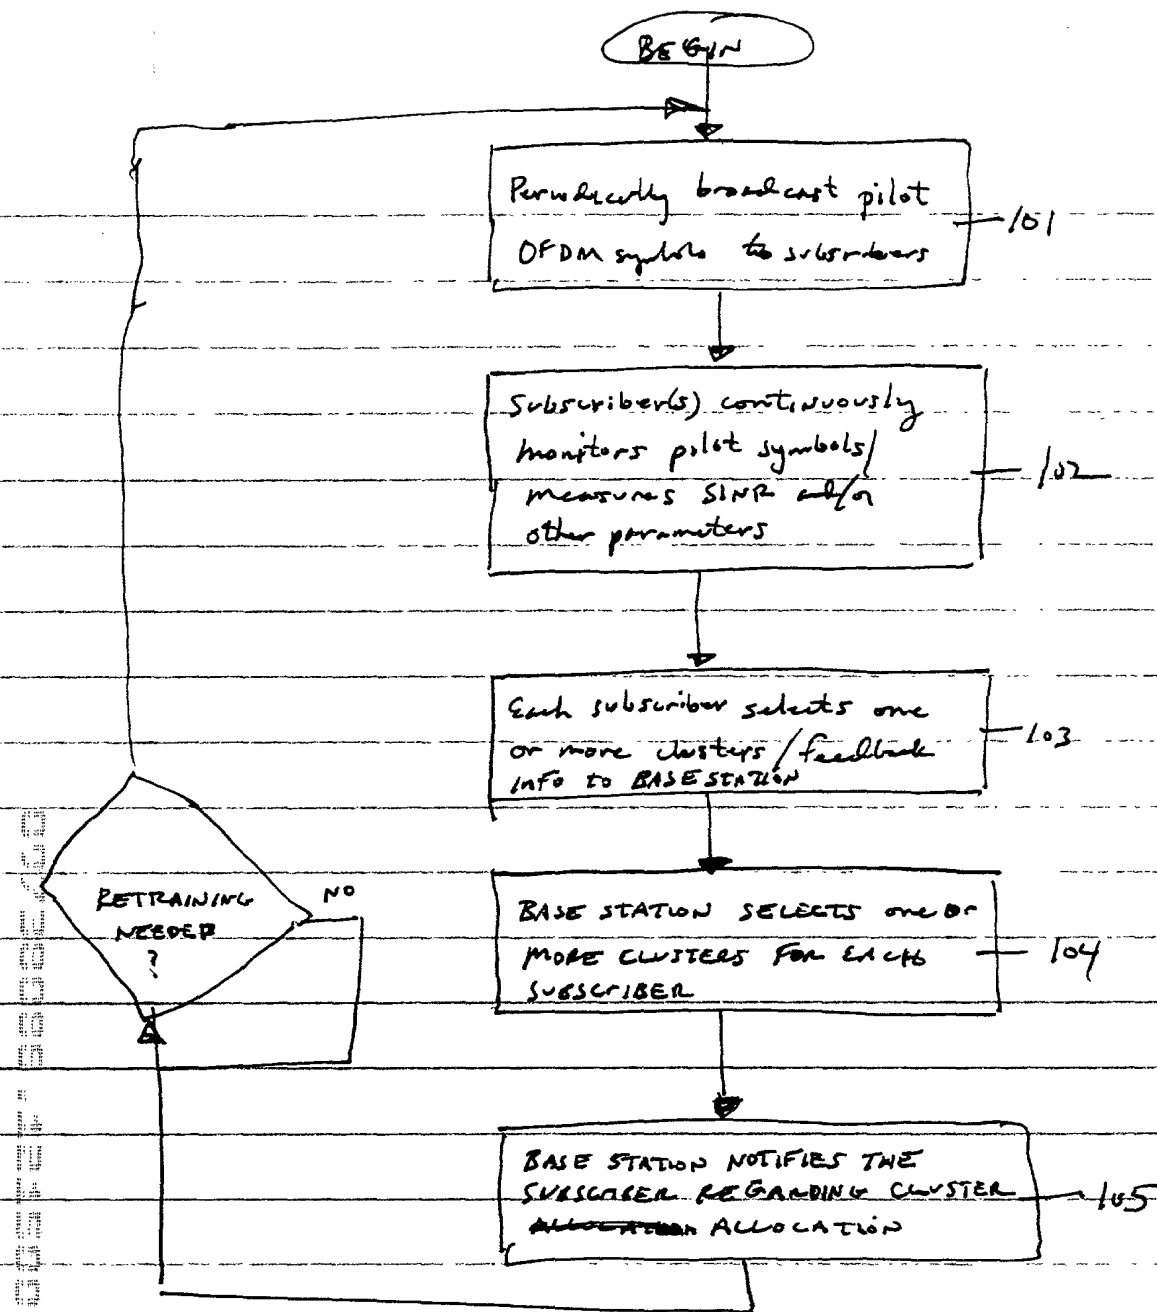 BEGIN
Periodically broadcast pilot
OFDM symbols to subscribers
101
Subscriber(s) continuously
monitors pilot symbols/
measures SINR and/or
other parameters
102
Each subscriber selects one
or more clusters / feedback
info to BASE STATION
103
RETRAINING
NEEDED
?
NO
BASE STATION SELECTS one or
MORE CLUSTERS FOR EACH
SUBSCRIBER
104
BASE STATION NOTIFIES THE
SUBSCRIBER REGARDING CLUSTER
ALLOCATION
105